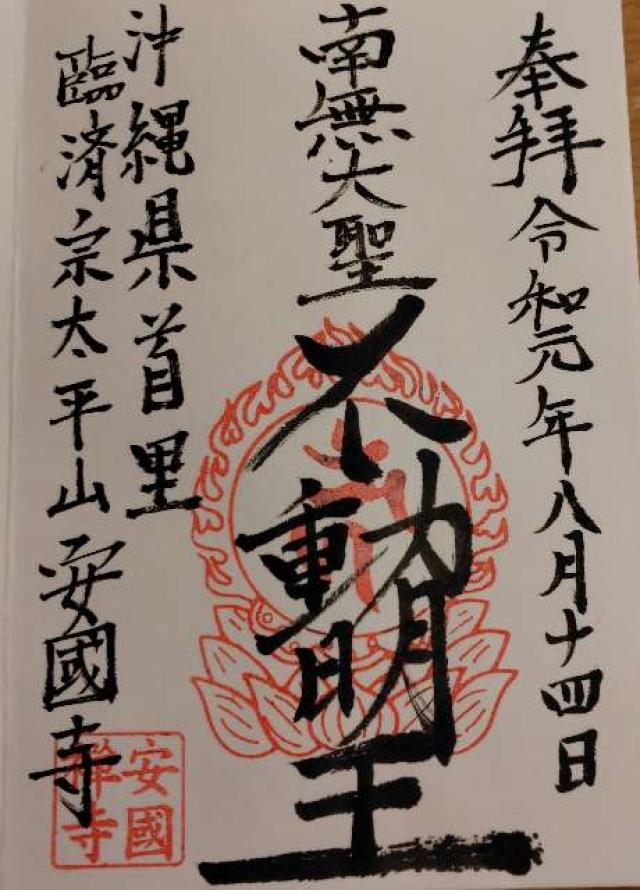 奉拝令和元年八月十四日
南無大聖不動明王
沖縄県首里
臨済宗太平山安國寺
安國
禅寺